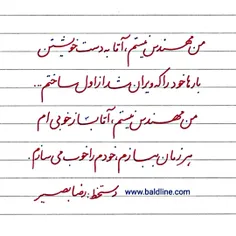 من مهندس نیستم، امّا به دست خویشتن
بارها خود را که ویران شد از اول ساختم...
من مهندس نیستم، امّا بشار خوبی ام
هر زمان بسازم، خودم را خوب می سازم.
دستخط: رضا بصیر www.baldline.com